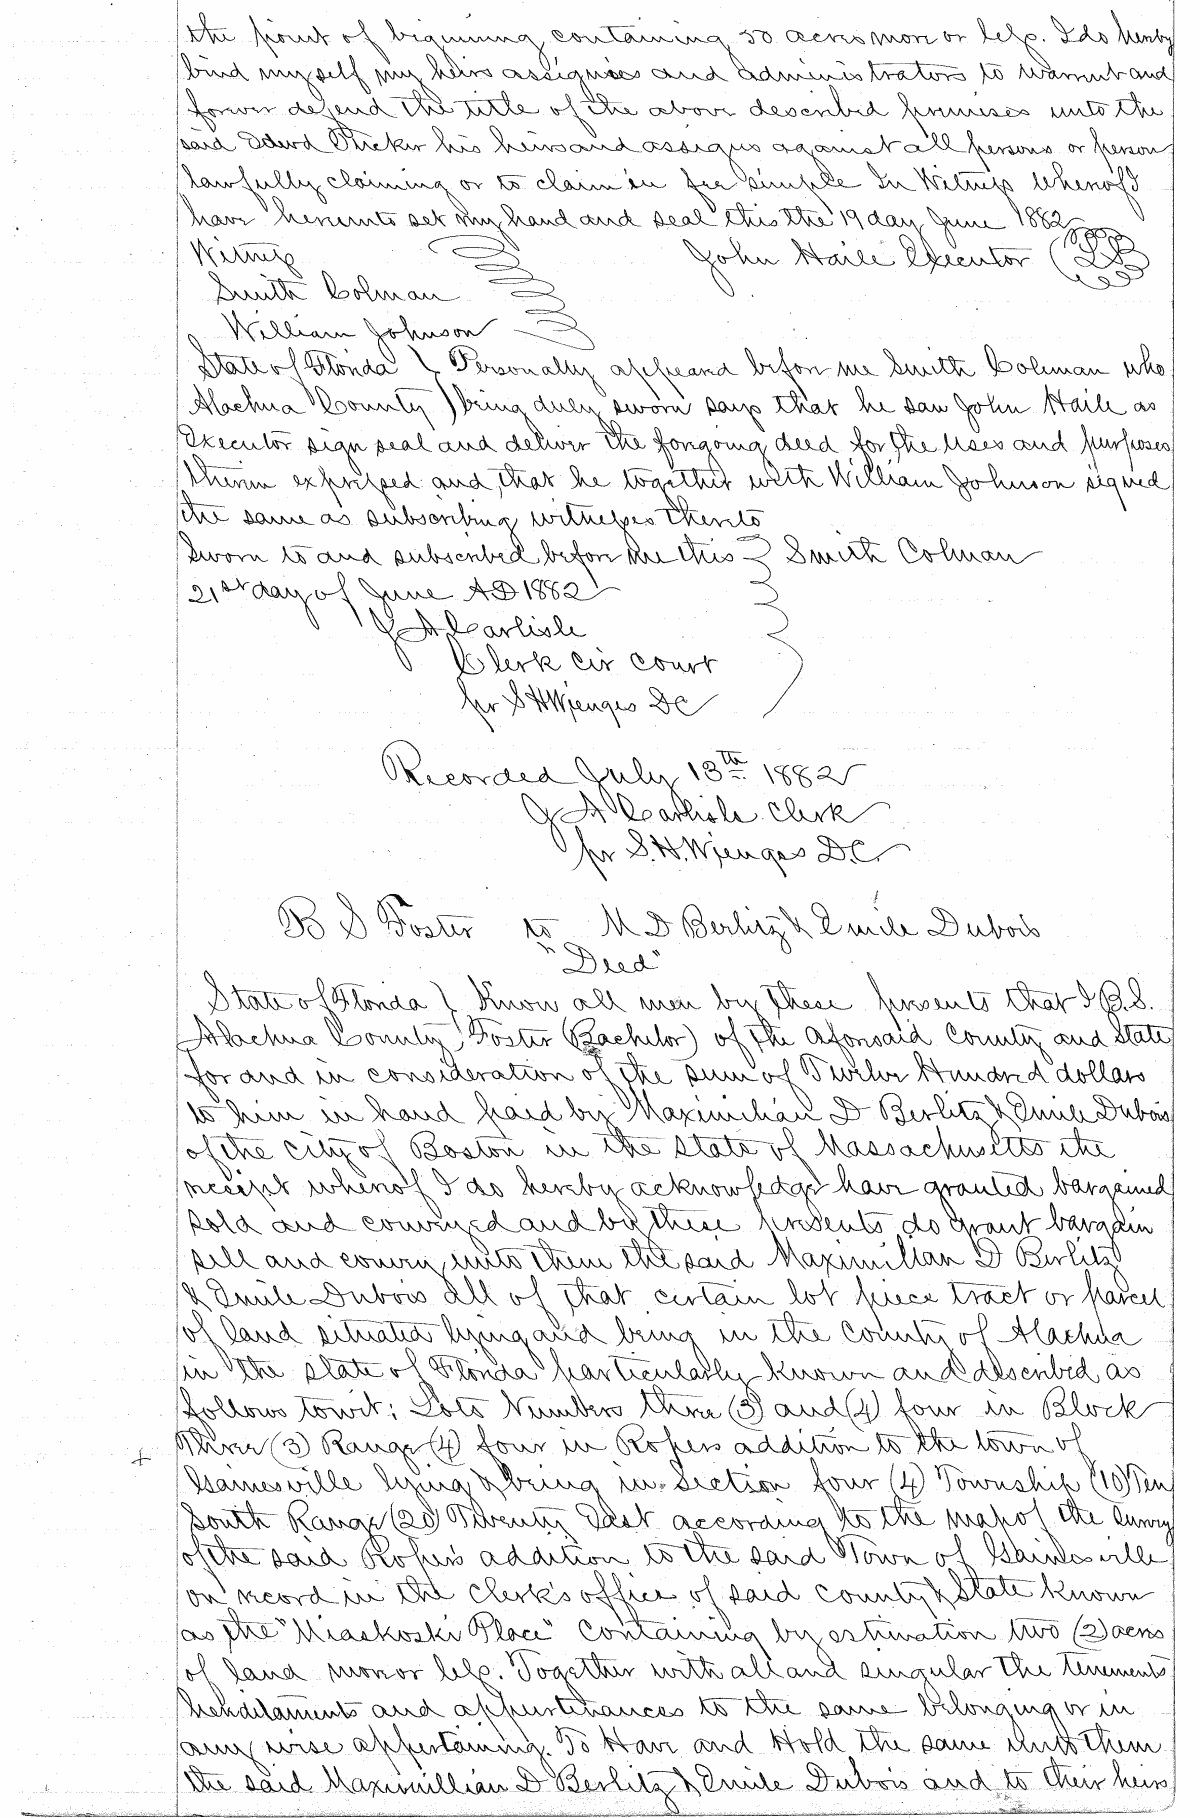 the point of beginning containing 50 acres more or less. I do hereby
bind myself my heirs assignees and administrators to warrent and
forever defend the title of the above described premises unto the
said his heirs and assigns against all persons or person
lawfully claiming or to claim in fee simple In Witness whereof I
have hereunto set my hand and seal this the 19 day June 1882
Witness John Haile Executor (LS)
Smith Colman
William Johnson
State of Florida } Personally appeared before me Smith Coleman who
Alachua County } being duly sworn says that he saw John Haile as
Executor sign seal and deliver the foregoing deed for the uses and purposes
therein expressed and that he together with William Johnson signed
the same as subscribing witnesses thereto
Sworn to and subscribed before me this } Smith Colman
21st day of June AD 1882
J A Carlisle
Clerk cir court
per S H Wienges DC
Recorded July 13th 1882
J A Carlisle Clerk
per S. H. Wienges D.C.
B S Foster to M D Berlitz & Emile Dubois
"Deed"
State of Florida } Know all men by these presents that I B.S.
Alachua County } Foster (Bachelor) of the aforesaid County and State
for and in consideration of the sum of Twelve Hundred dollars
to him in hand paid by Maximilian D Berlitz & Emile Dubois
of the city of Boston in the state of Massachusetts the
receipt whereof I do hereby acknowledge have granted bargained
sold and conveyed and by these presents do grant bargain
sell and convey unto them the said Maximillian D Berlitz
& Emile Dubois all of that certain lot piece tract or parcel
of land situated lying and being in the county of Alachua
in the state of Florida particularly known and described as
follows towit; Lots Numbers three (3) and (4) four in Block
Three (3) Range (4) four in Ropers addition to the town of
+
Gainesville lying & being in Section four (4) Township (10) Ten
South Range (20) Twenty East according to the map of the survey
of the said Roper's addition to the said Town of Gainesville
on record in the clerk's office of said county & State known
as the "Miaskoski Place" Containing by estimation two (2) acres
of land more or less. Together with all and singular the tenements
hereditaments and appurtenances to the same belonging or in
any wise appertaining. To Have and Hold the same unto them
the said Maximillian D Berlitz & Emile Dubois and to their heirs